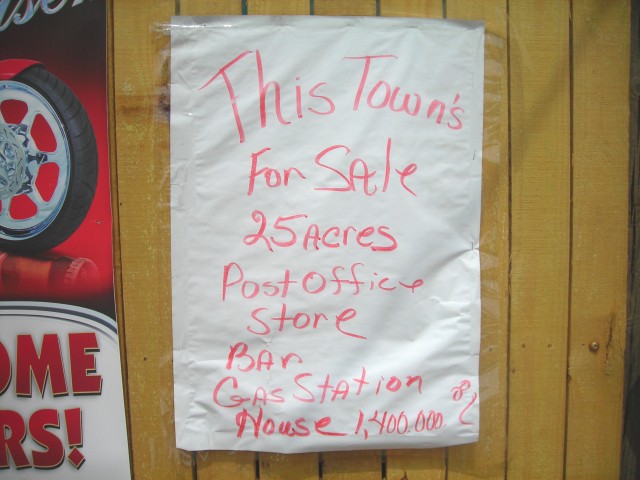 This Town's
For Sale
25 Acres
Post Office
Store
Bar
Gas Station
House 1,400.000.
OME
RS!